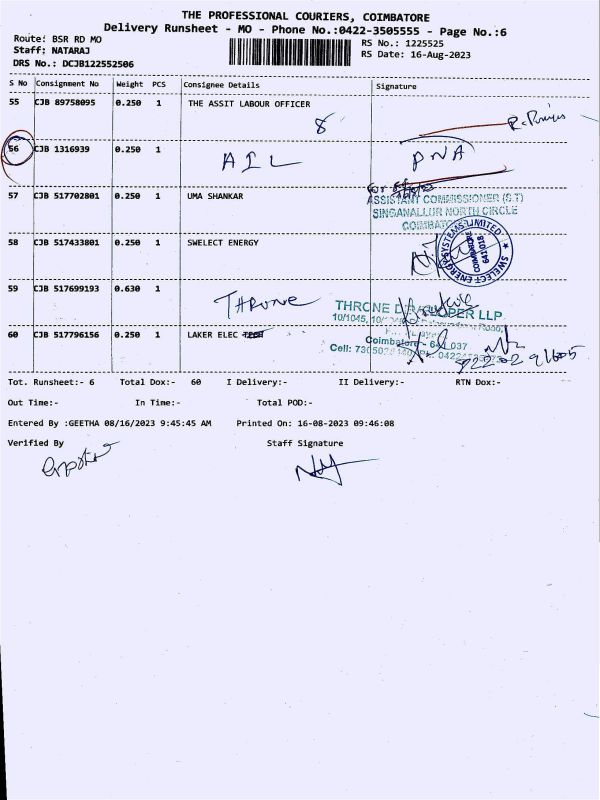 THE PROFESSIONAL COURIERS, COIMBATORE
Delivery Runsheet - MO - Phone No.:0422-3505555 - Page No.:6
Route: BSR RD MO
Staff: NATARAJ
DRS No.: DCJB122552506
RS No.: 1225525
RS Date: 16-Aug-2023
S No Consignment No Weight PCS Consignee Details Signature
55 CJB 89758095 0.250 1 THE ASSIT LABOUR OFFICER
8
56 CJB 1316939 0.250 1 AIL DNA
57 CJB 517702801 0.250 1 UMA SHANKAR
ASSISTANT COMMISSIONER (S.T)
SINGANALLUR NORTH CIRCLE
COIMBATORE
58 CJB 517433801 0.250 1 SWELECT ENERGY
SWELECT ENERGY SYSTEMS LIMITED
COIMBATORE
641 018
59 CJB 517699193 0.630 1 THRONE
THRONE DEVELOPER LLP
10/1045,
Road,
60 CJB 517796156 0.250 1 LAKER ELEC
Coimbatore - 641 037
Tot. Runsheet:- 6 Total Dox:- 60 I Delivery:- II Delivery:- RTN Dox:-
Out Time:- In Time:- Total POD:-
Entered By :GEETHA 08/16/2023 9:45:45 AM Printed On: 16-08-2023 09:46:08
Verified By Staff Signature